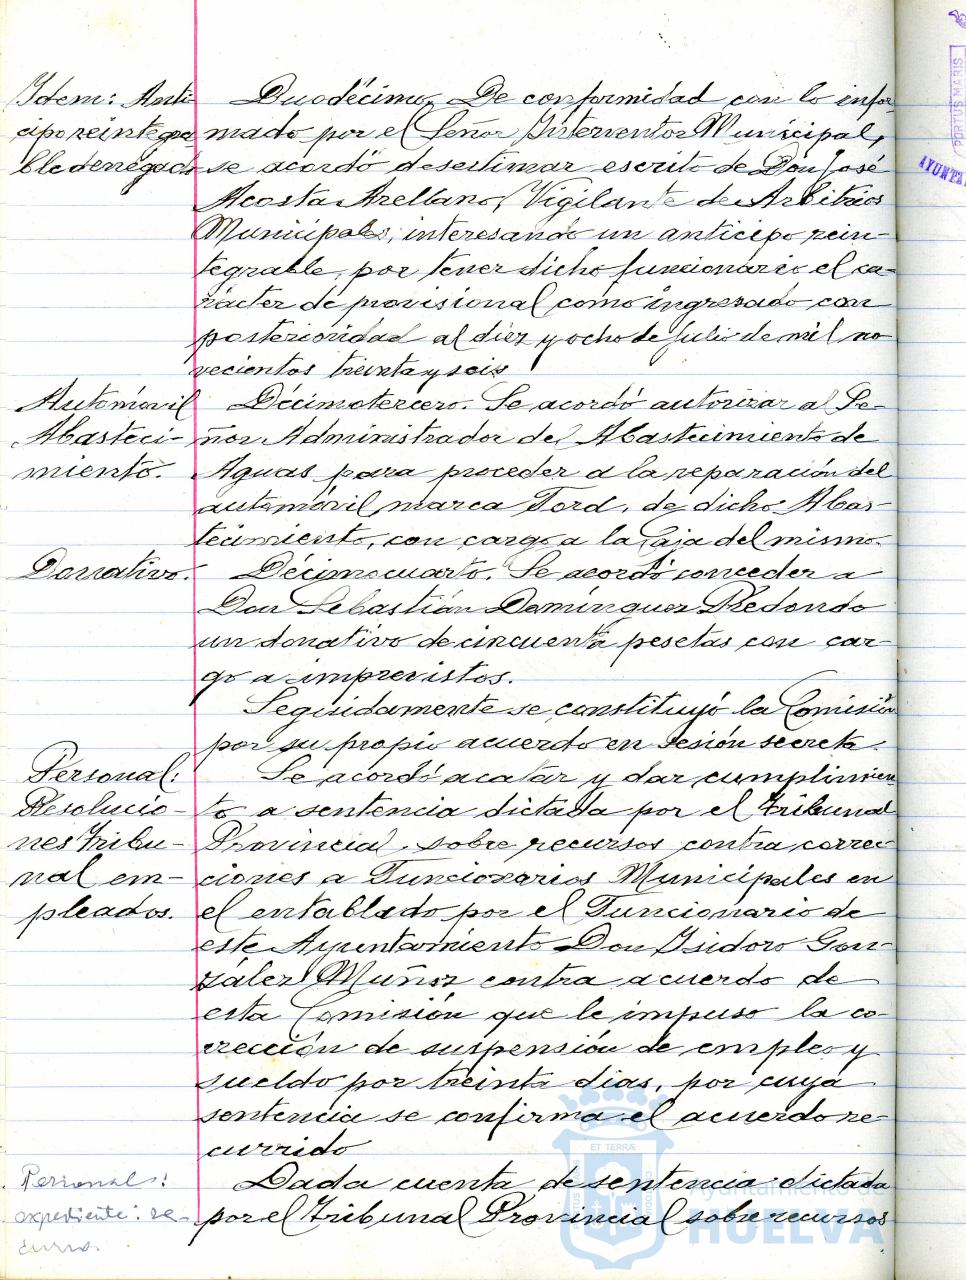 Idem: Anti-
cipo reintegra-
ble denegado
Duodécimo. De conformidad con lo infor-
mado por el Señor Interventor Municipal,
se acordó desestimar escrito de Don José
Acosta Arellano, Vigilante de Arbitrios
Municipales, interesando un anticipo rein-
tegrable, por tener dicho funcionario el ca-
rácter de provisional como ingresado con
posterioridad al diez y ocho de Julio de mil no
vecientos treinta y seis
Automóvil
Abasteci-
miento.
Décimotercero. Se acordó autorizar al Se-
ñor Administrador del Abastecimiento de
Aguas para proceder a la reparación del
automóvil marca Ford, de dicho Abas-
tecimiento, con cargo a la Caja del mismo.
Donativo.
Décimocuarto. Se acordó conceder a
Don Sebastián Domínguez Redondo
un donativo de cincuenta pesetas con car-
go a imprevistos.
Seguidamente se constituyó la Comisión
por su propio acuerdo en sesión secreta.
Personal:
Resolucio-
nes Tribu-
nal em-
pleados.
Se acordó acatar y dar cumplimien-
to a sentencia dictada por el Tribunal
Provincial sobre recursos contra correc-
ciones a Funcionarios Municipales en
el entablado por el Funcionario de
este Ayuntamiento Don Isidoro Gon-
zález Muñoz contra acuerdo de
esta Comisión que le impuso la co-
rrección de suspensión de empleo y
sueldo por treinta dias, por cuya
sentencia se confirma el acuerdo re-
currido
Personal:
expediente: re-
curso.
Dada cuenta de sentencia dictada
por el Tribunal Provincial sobre recursos
PORTUS MARIS
AYUNTA
ET TERRÆ
Ayuntamiento de
HUELVA